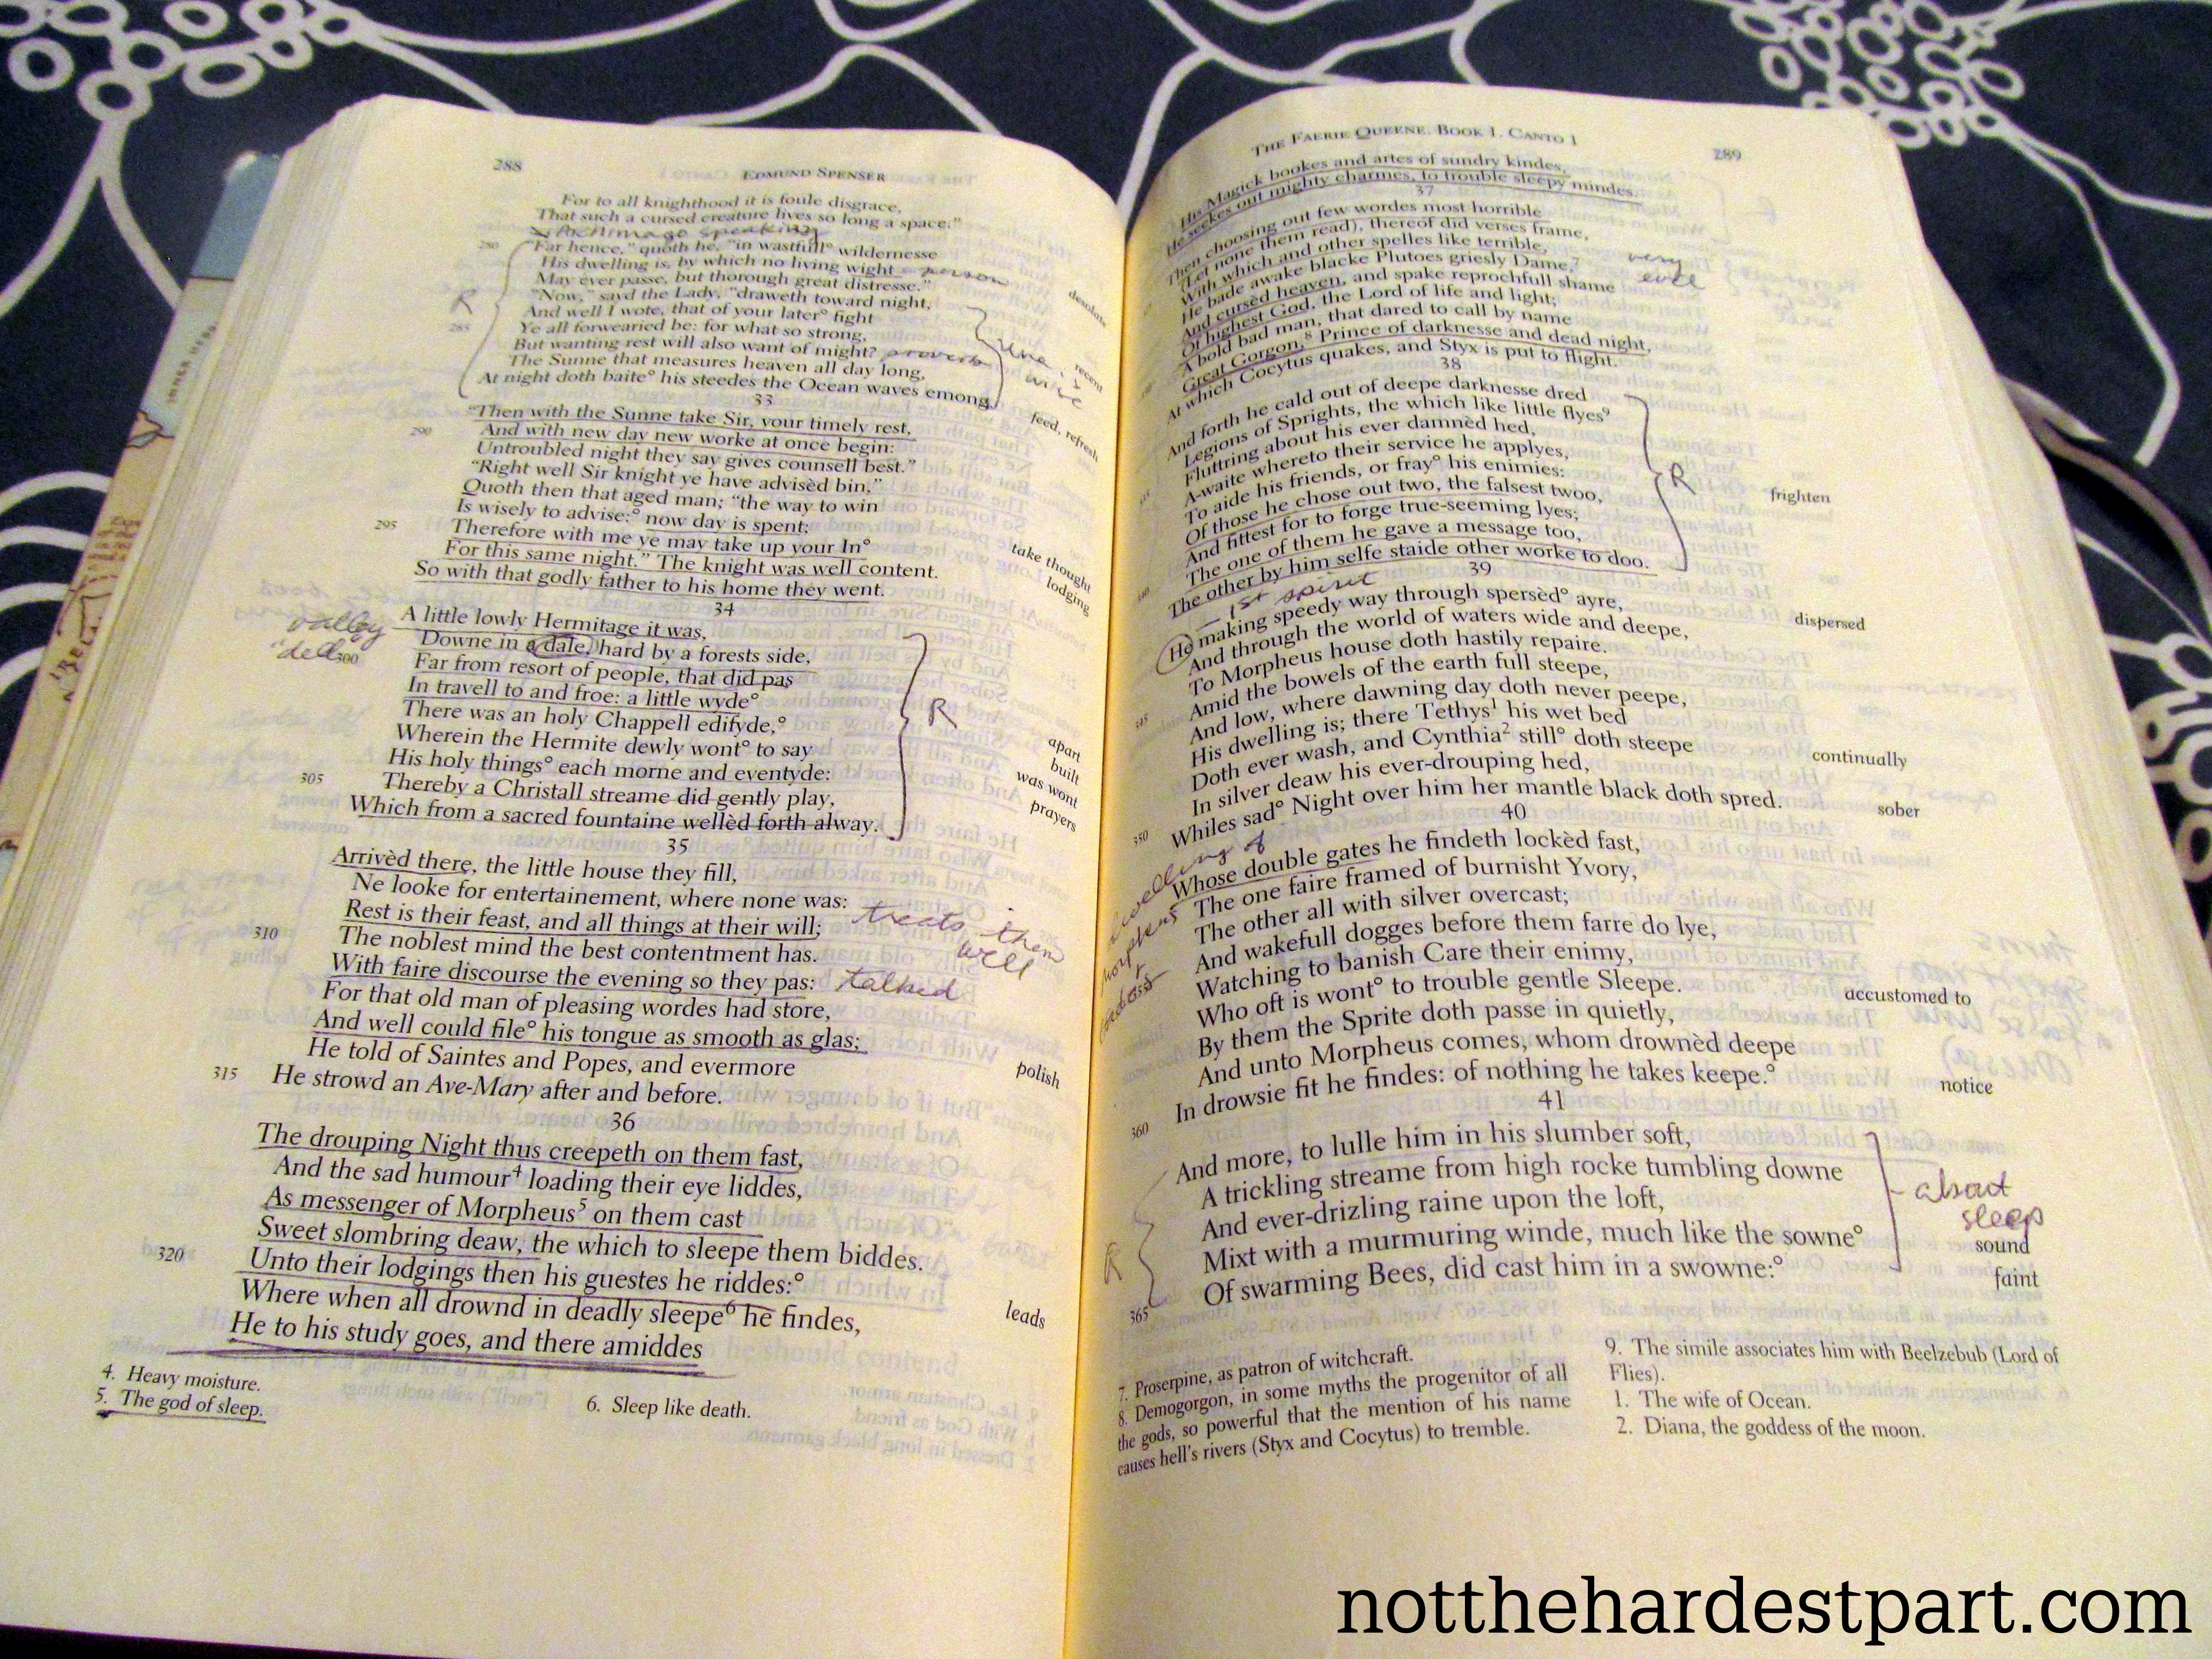 288
EDMUND SPENSER
For to all knighthood it is foule disgrace,
That such a cursed creature lives so long a space."
Archimago speaking
280
"Far hence," quoth he, "in wastfull° wildernesse
desolate
His dwelling is, by which no living wight
person
May ever passe, but thorough great distresse."
"Now," sayd the Lady, "draweth toward night,
R
And well I wote, that of your later° fight
recent
285
Ye all forwearied be: for what so strong,
But wanting rest will also want of might?
proverb
Una is wise
The Sunne that measures heaven all day long,
At night doth baite° his steedes the Ocean waves emong.
feed, refresh
33
"Then with the Sunne take Sir, your timely rest,
290
And with new day new worke at once begin:
Untroubled night they say gives counsell best."
"Right well Sir knight ye have advisèd bin,"
Quoth then that aged man; "the way to win
Is wisely to advise:° now day is spent;
take thought
295
Therefore with me ye may take up your In°
lodging
For this same night." The knight was well content.
So with that godly father to his home they went.
34
A little lowly Hermitage it was,
valley
Downe in a dale, hard by a forests side,
"dell
300
Far from resort of people, that did pas
In travell to and froe: a little wyde°
apart
There was an holy Chappell edifyde,°
built
R
Wherein the Hermite dewly wont° to say
was wont
His holy things° each morne and eventyde:
prayers
305
Thereby a Christall streame did gently play,
Which from a sacred fountaine wellèd forth alway.
35
Arrivèd there, the little house they fill,
Ne looke for entertainement, where none was:
Rest is their feast, and all things at their will;
treats them well
310
The noblest mind the best contentment has.
With faire discourse the evening so they pas:
talked
For that old man of pleasing wordes had store,
And well could file° his tongue as smooth as glas;
polish
He told of Saintes and Popes, and evermore
315
He strowd an Ave-Mary after and before.
36
The drouping Night thus creepeth on them fast,
And the sad humour⁴ loading their eye liddes,
As messenger of Morpheus⁵ on them cast
Sweet slombring deaw, the which to sleepe them biddes.
320
Unto their lodgings then his guestes he riddes:°
leads
Where when all drownd in deadly sleepe⁶ he findes,
He to his study goes, and there amiddes
4. Heavy moisture.
5. The god of sleep.
6. Sleep like death.
THE FAERIE QUEENE, BOOK 1, CANTO 1
289
His Magick bookes and artes of sundry kindes,
He seekes out mighty charmes, to trouble sleepy mindes.
37
Then choosing out few wordes most horrible
(Let none them read), thereof did verses frame,
With which and other spelles like terrible,
He bade awake blacke Plutoes griesly Dame,⁷
very evil
And cursèd heaven, and spake reprochfull shame
Of highest God, the Lord of life and light;
A bold bad man, that dared to call by name
Great Gorgon,⁸ Prince of darknesse and dead night,
At which Cocytus quakes, and Styx is put to flight.
38
And forth he cald out of deepe darknesse dred
Legions of Sprights, the which like little flyes⁹
Fluttring about his ever damnèd hed,
A-waite whereto their service he applyes,
To aide his friends, or fray° his enimies:
R
frighten
Of those he chose out two, the falsest twoo,
And fittest for to forge true-seeming lyes;
The one of them he gave a message too,
The other by him selfe staide other worke to doo.
39
1st spirit
He making speedy way through spersèd° ayre,
dispersed
And through the world of waters wide and deepe,
To Morpheus house doth hastily repaire.
Amid the bowels of the earth full steepe,
345
And low, where dawning day doth never peepe,
His dwelling is; there Tethys¹ his wet bed
Doth ever wash, and Cynthia² still° doth steepe
continually
In silver deaw his ever-drouping hed,
350
Whiles sad° Night over him her mantle black doth spred.
sober
40
dwelling of Morpheus
Whose double gates he findeth lockèd fast,
The one faire framed of burnisht Yvory,
The other all with silver overcast;
And wakefull dogges before them farre do lye,
Watching to banish Care their enimy,
Who oft is wont° to trouble gentle Sleepe.
accustomed to
By them the Sprite doth passe in quietly,
And unto Morpheus comes, whom drownèd deepe
360
In drowsie fit he findes: of nothing he takes keepe.°
notice
41
And more, to lulle him in his slumber soft,
A trickling streame from high rocke tumbling downe
And ever-drizling raine upon the loft,
about sleep
Mixt with a murmuring winde, much like the sowne°
sound
R
365
Of swarming Bees, did cast him in a swowne:°
faint
7. Proserpine, as patron of witchcraft.
8. Demogorgon, in some myths the progenitor of all
the gods, so powerful that the mention of his name
causes hell's rivers (Styx and Cocytus) to tremble.
9. The simile associates him with Beelzebub (Lord of
Flies).
1. The wife of Ocean.
2. Diana, the goddess of the moon.
notthehardestpart.com